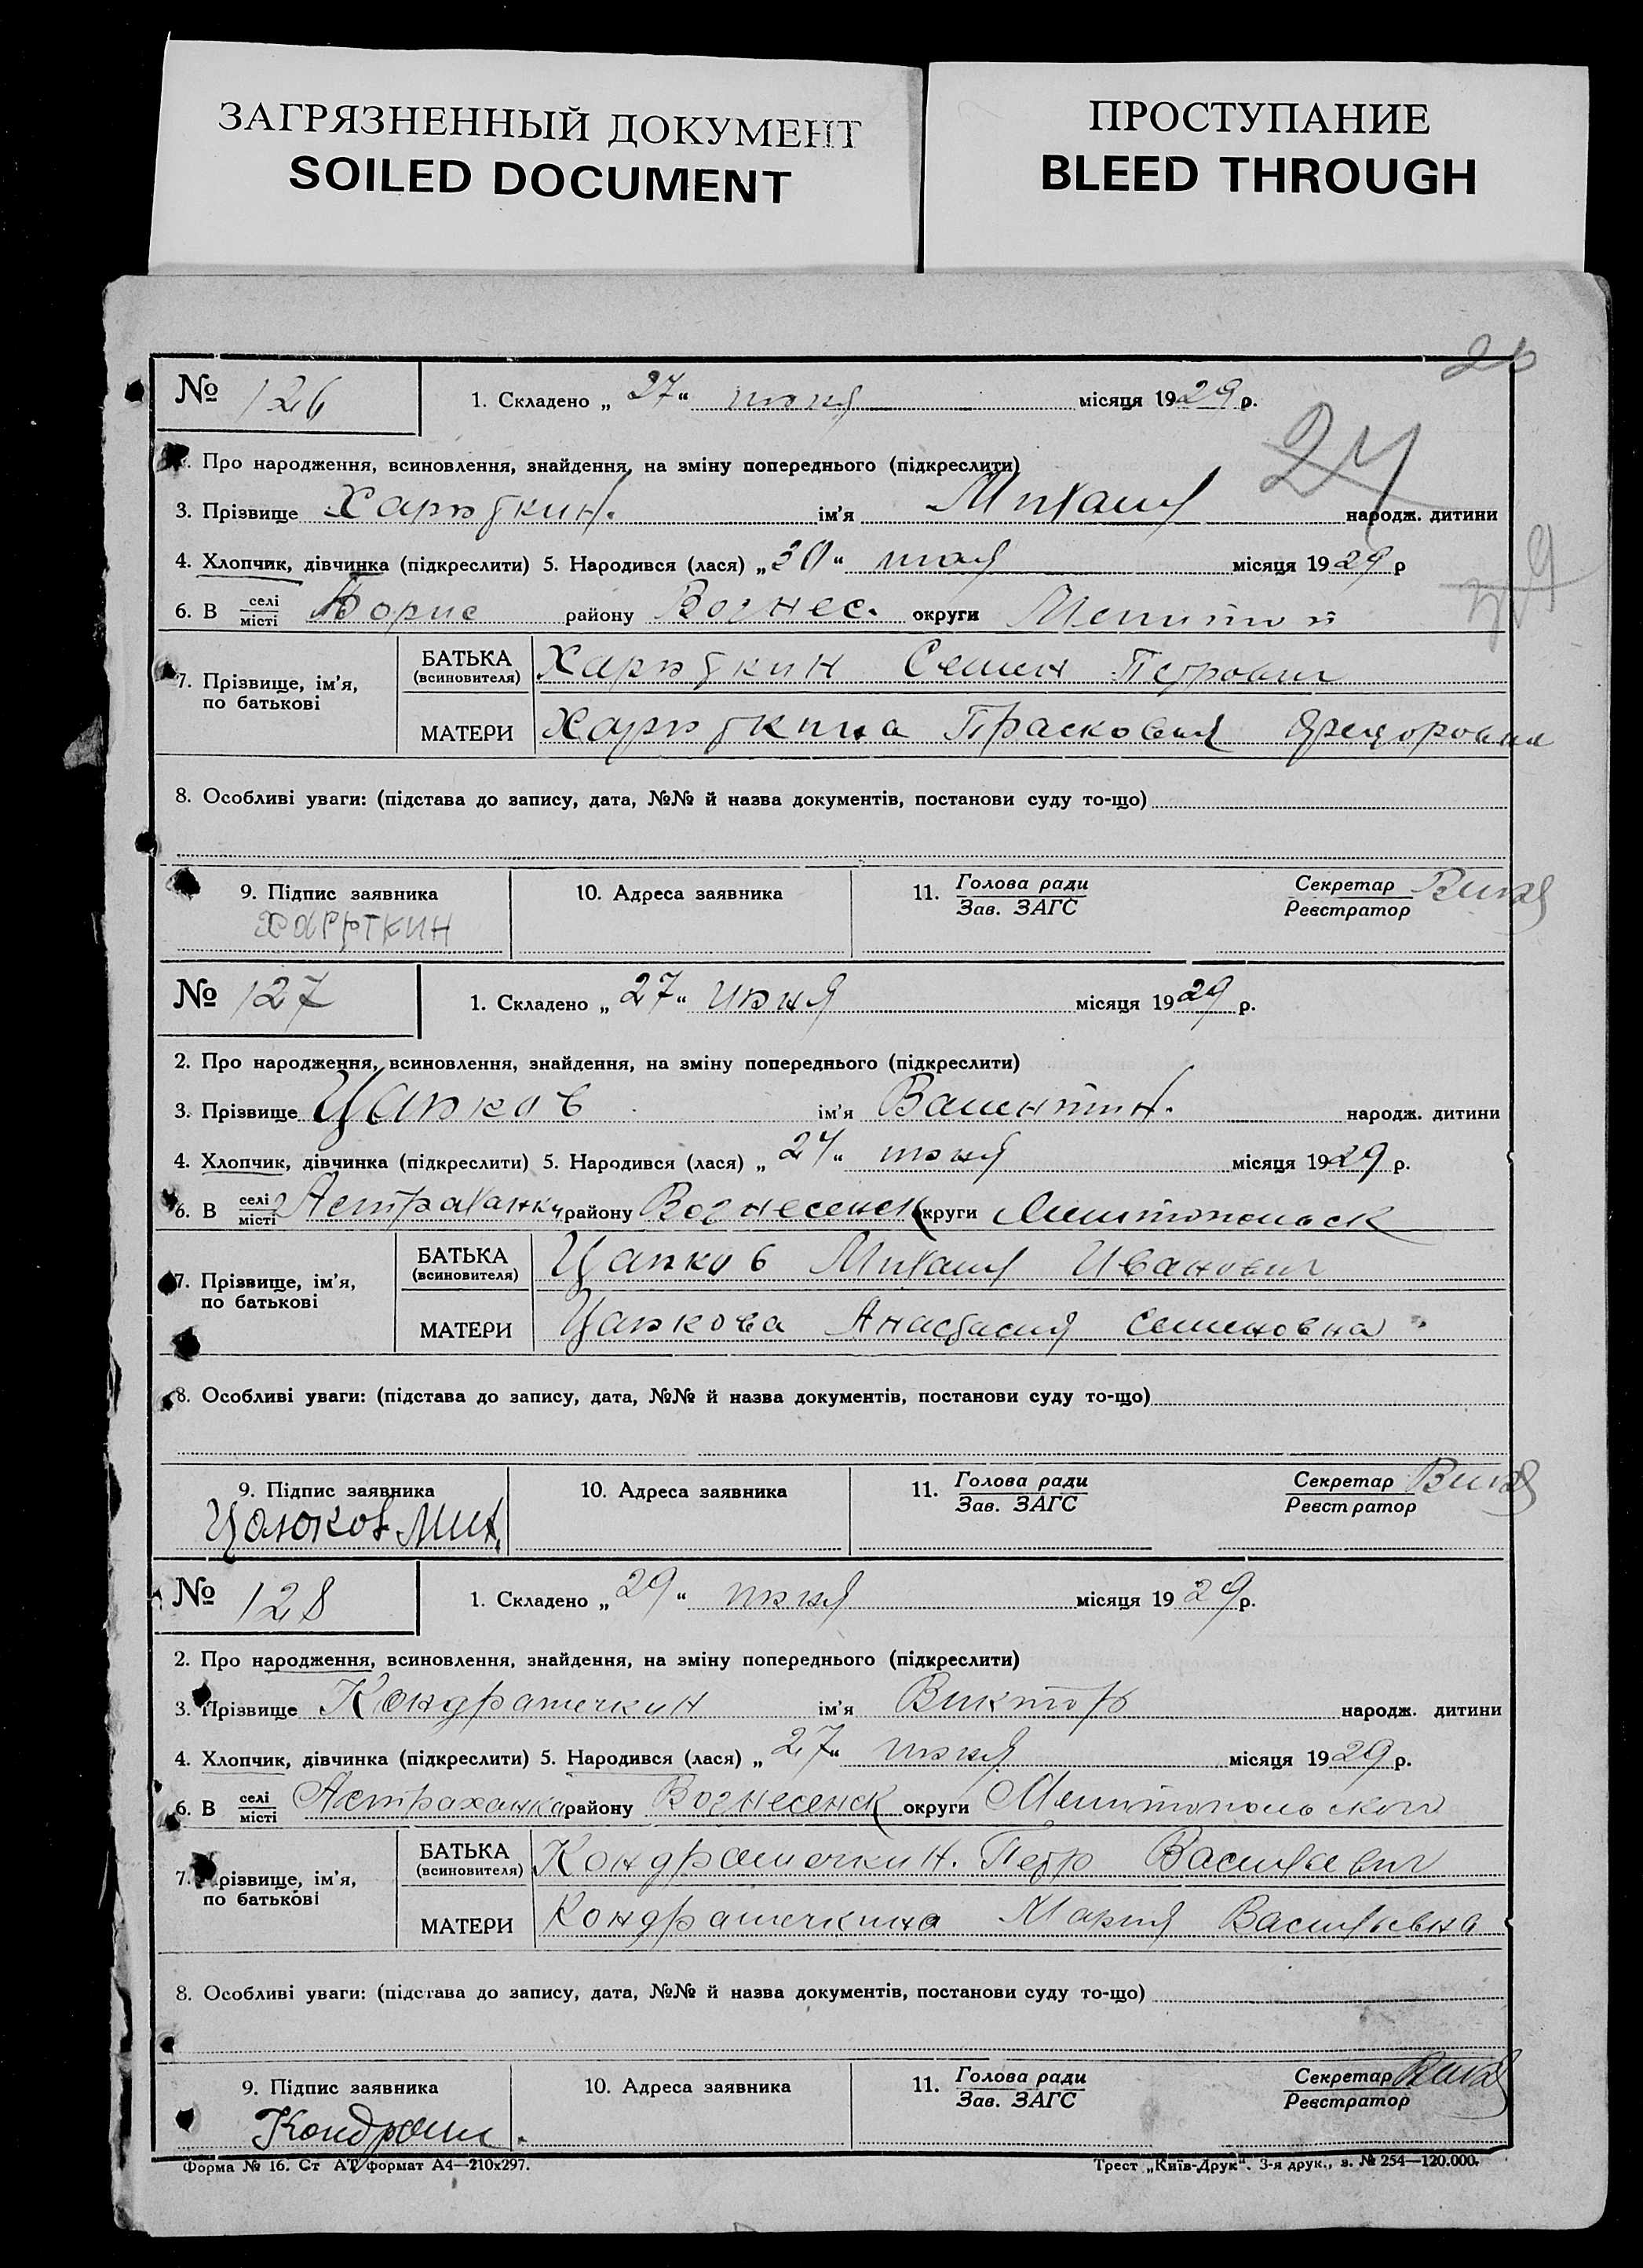 ЗАГРЯЗНЕННЫЙ ДОКУМЕНТ
SOILED DOCUMENT
ПРОСТУПАНИЕ
BLEED THROUGH
№ 126 1. Складено „27“ июня місяця 1929 р.
Про народження, всиновлення, знайдення, на зміну попереднього (підкреслити)
24
3. Прізвище Харюткин. ім'я Михаил народж. дитини
4. Хлопчик, дівчинка (підкреслити) 5. Народився (лася) „30“ мая місяця 1929 р
6. В селі/місті району Вознес. округи
7. Прізвище, ім'я, по батькові
БАТЬКА (всиновителя) Харюткин Семен Петрович
МАТЕРИ Харюткина Прасковья Федоровна
8. Особливі уваги: (підстава до запису, дата, №№ й назва документів, постанови суду то-що)
9. Підпис заявника 10. Адреса заявника 11. Голова ради/Зав. ЗАГС Секретар/Реєстратор
ХАРЮТКИН
№ 127 1. Складено „27“ июня місяця 1929 р.
2. Про народження, всиновлення, знайдення, на зміну попереднього (підкреслити)
3. Прізвище Цапков ім'я Валентин. народж. дитини
4. Хлопчик, дівчинка (підкреслити) 5. Народився (лася) „24“ июня місяця 1929 р.
6. В селі/місті Астраханку району Вознесенск округи Мелитопольск
7. Прізвище, ім'я, по батькові
БАТЬКА (всиновителя) Михаил Иванович
МАТЕРИ Анастасия Семеновна
8. Особливі уваги: (підстава до запису, дата, №№ й назва документів, постанови суду то-що)
9. Підпис заявника 10. Адреса заявника 11. Голова ради/Зав. ЗАГС Секретар/Реєстратор
Мих.
№ 128 1. Складено „29“ июня місяця 1929 р.
2. Про народження, всиновлення, знайдення, на зміну попереднього (підкреслити)
3. Прізвище Кондрашечкин ім'я Виктор народж. дитини
4. Хлопчик, дівчинка (підкреслити) 5. Народився (лася) „27“ июня місяця 1929 р.
6. В селі/місті Астраханка району Вознесенск округи Мелитопольского
7. Прізвище, ім'я, по батькові
БАТЬКА (всиновителя) Кондрашечкин. Петр Васильевич
МАТЕРИ Кондрашечкина Мария Васильевна
8. Особливі уваги: (підстава до запису, дата, №№ й назва документів, постанови суду то-що)
9. Підпис заявника 10. Адреса заявника 11. Голова ради/Зав. ЗАГС Секретар/Реєстратор
Кондраш.
Форма № 16. Ст АТ формат А4—210х297. Трест „Київ-Друк“. 3-я друк., з. № 254—120.000.